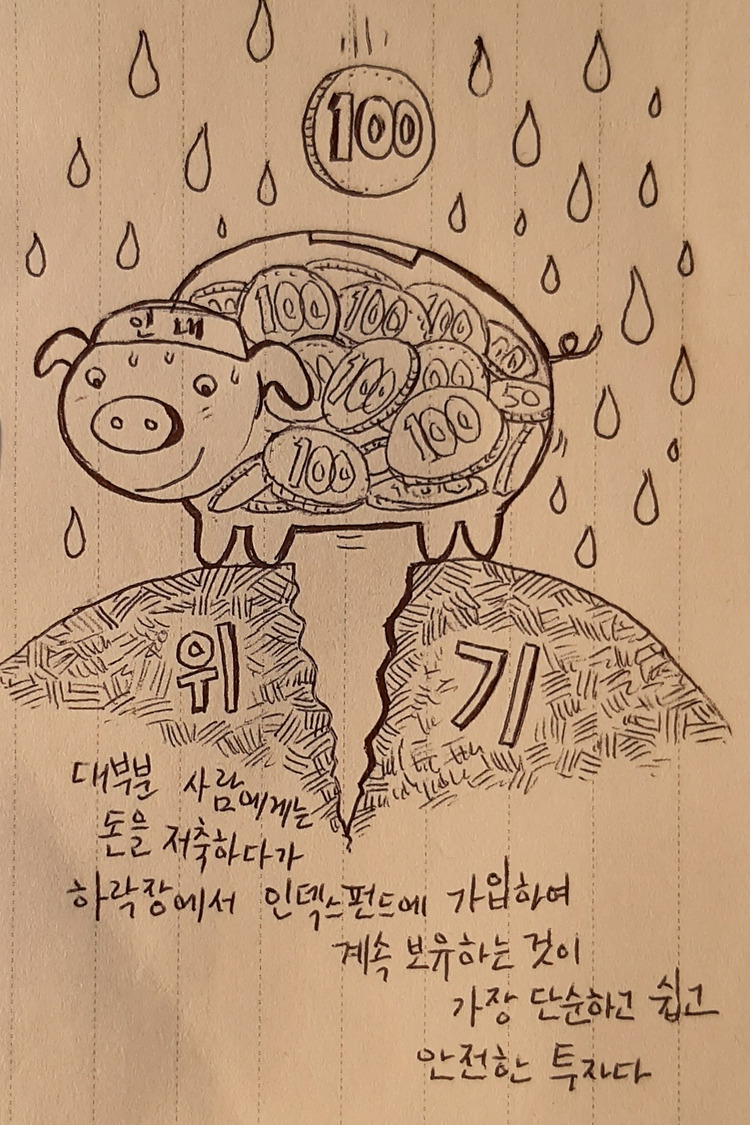 100
100
100
100
100
00
50
100
100
100
인내
위 기
대부분 사람에게는
돈을 저축하다가
하락장에서 인덱스펀드에 가입하여
계속 보유하는 것이
가장 단순하고 쉽고
안전한 투자다